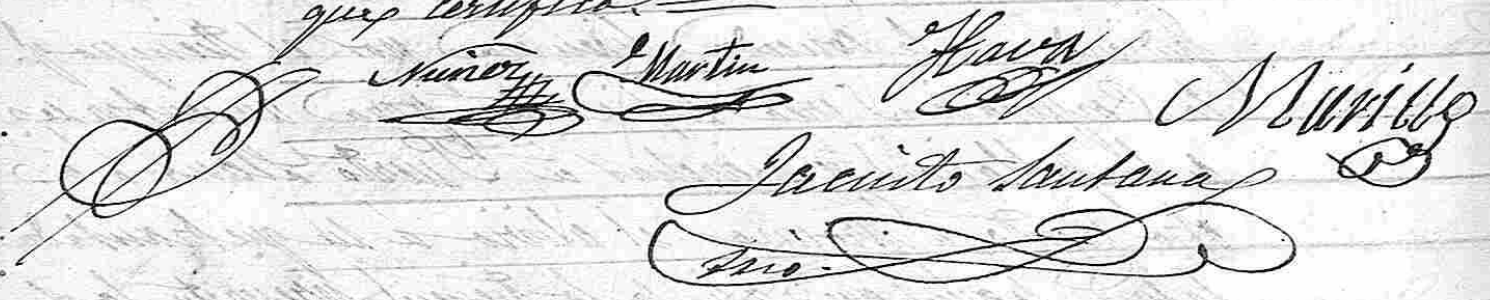 que certifico.
Nuñez Martin Hava Murillo
Jacinto Santana
Srio.